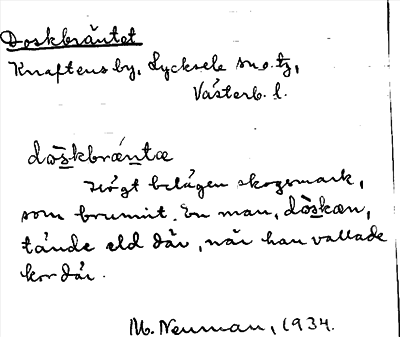 Doskbräntet
Knaftens by, Lycksele sn o. tg,
Västerb. l.
dɷ̀skbrǽntæ
Högt belägen skogsmark,
som brunnit. En man, dɷ̀skæn,
tände eld där, när han vallade
kor där.
M. Neuman, 1934.